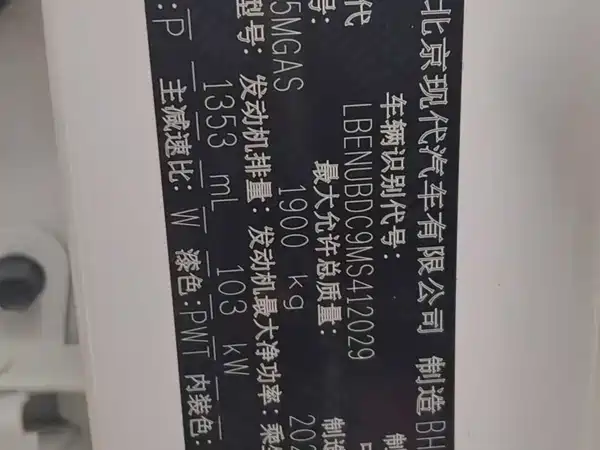 北京现代汽车有限公司 制造 BH
车辆识别代号:
代 LBENUBDC9MS412029
号: 最大允许总质量: 制造
5MGAS 1900 kg 202
型号: 发动机排量: 发动机最大净功率:
1353 mL 103 kW
:P 主减速比: W 漆色:PWT 内装色: